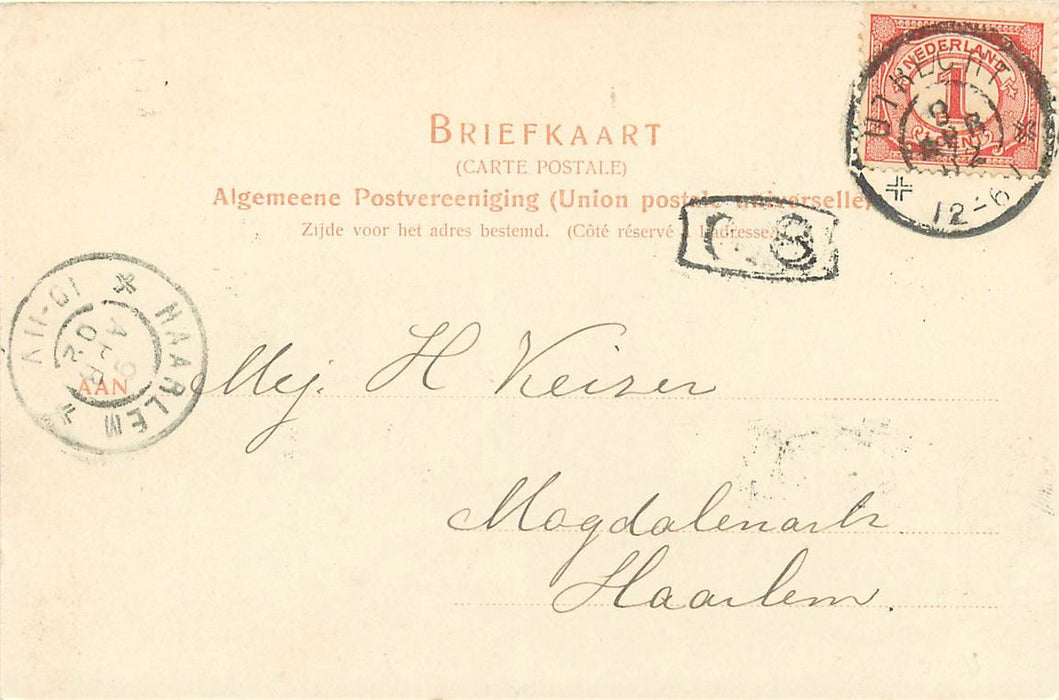 NEDERLAND
1
CENT
UTRECHT
12-6N
BRIEFKAART
(CARTE POSTALE)
Algemeene Postvereeniging (Union postale universelle)
Zijde voor het adres bestemd. (Côté réservé à l'adresse.)
HAARLEM
10-11V
AAN
Mej. H Keizer
Magdalenastr
Haarlem.